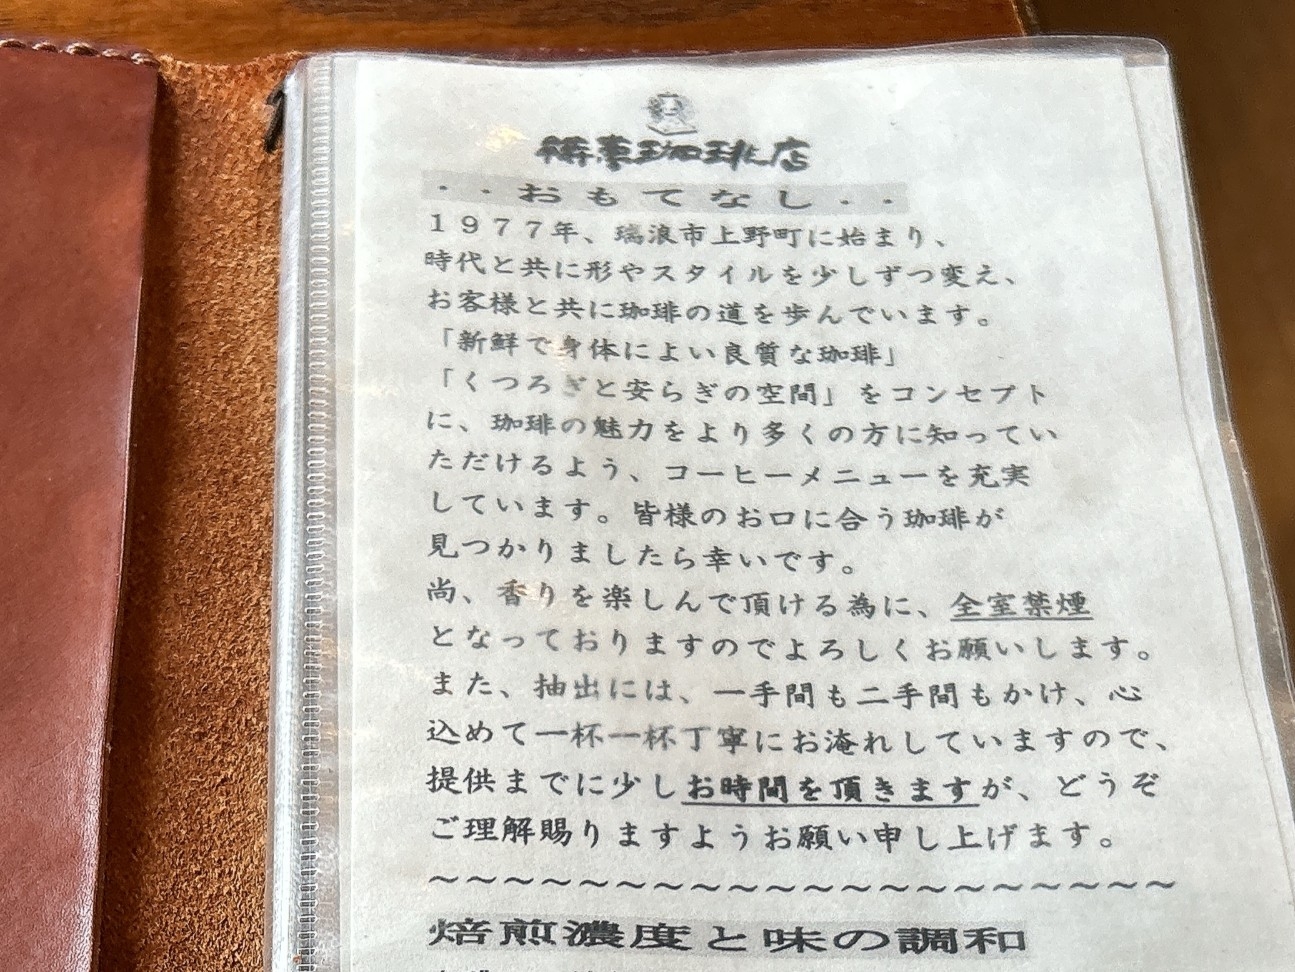 待夢珈琲店
・・おもてなし・・
１９７７年、瑞浪市上野町に始まり、
時代と共に形やスタイルを少しずつ変え、
お客様と共に珈琲の道を歩んでいます。
「新鮮で身体によい良質な珈琲」
「くつろぎと安らぎの空間」をコンセプト
に、珈琲の魅力をより多くの方に知ってい
ただけるよう、コーヒーメニューを充実
しています。皆様のお口に合う珈琲が
見つかりましたら幸いです。
尚、香りを楽しんで頂ける為に、全室禁煙
となっておりますのでよろしくお願いします。
また、抽出には、一手間も二手間もかけ、心
込めて一杯一杯丁寧にお淹れしていますので、
提供までに少しお時間を頂きますが、どうぞ
ご理解賜りますようお願い申し上げます。
～～～～～～～～～～～～～～～～～～～～
焙煎濃度と味の調和